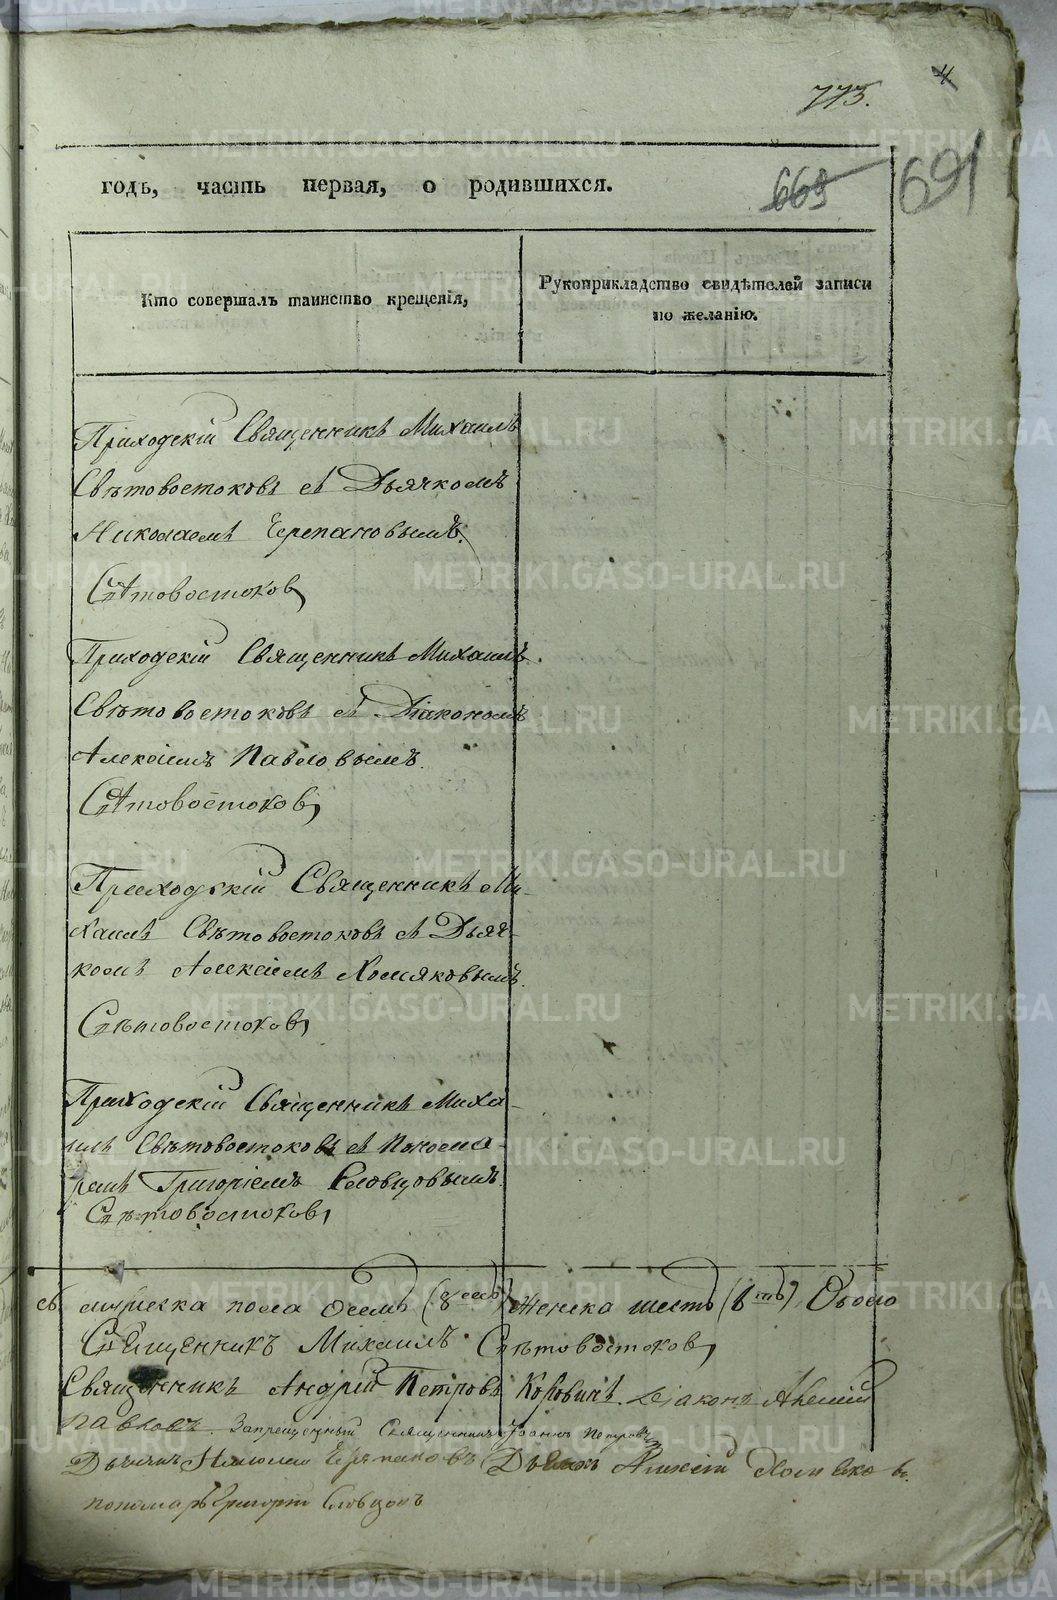 4
775.
годъ, часть первая, о родившихся.
669
691
Кто совершалъ таинство крещенія,
Рукоприкладство свидѣтелей записи
по желанію.
Приходскій Священникъ Михаилъ
Свѣтовостоковъ съ Дьячкомъ
Николаемъ Черепановымъ.
Свѣтовостоковъ
Приходскій Священникъ Михаилъ
Свѣтовостоковъ съ Діакономъ
Алексіемъ Павловымъ.
Свѣтовостоковъ
Приходскій Священникъ Ми-
хаилъ Свѣтовостоковъ съ Дьяч-
комъ Алексіемъ Хомяковымъ.
Свѣтовостоковъ
Приходскій Священникъ Миха-
илъ Свѣтовостоковъ съ Понома-
ремъ Григоріемъ Словцовымъ.
Свѣтовостоковъ
мужеска пола осемь (8 емь) женска шесть (6 ть). Обоего
Священникъ Михаилъ Свѣтовостоковъ
Священникъ Андрей Петровъ Коровинъ. Діаконъ Алексій
Павловъ. Запрещенный Священникъ Іоаннъ Петровъ
Дьячекъ Николай Черепановъ Дьячекъ Алексій Хомяковъ
пономарь Григорій Словцовъ
METRIKI.GASO-URAL.RU